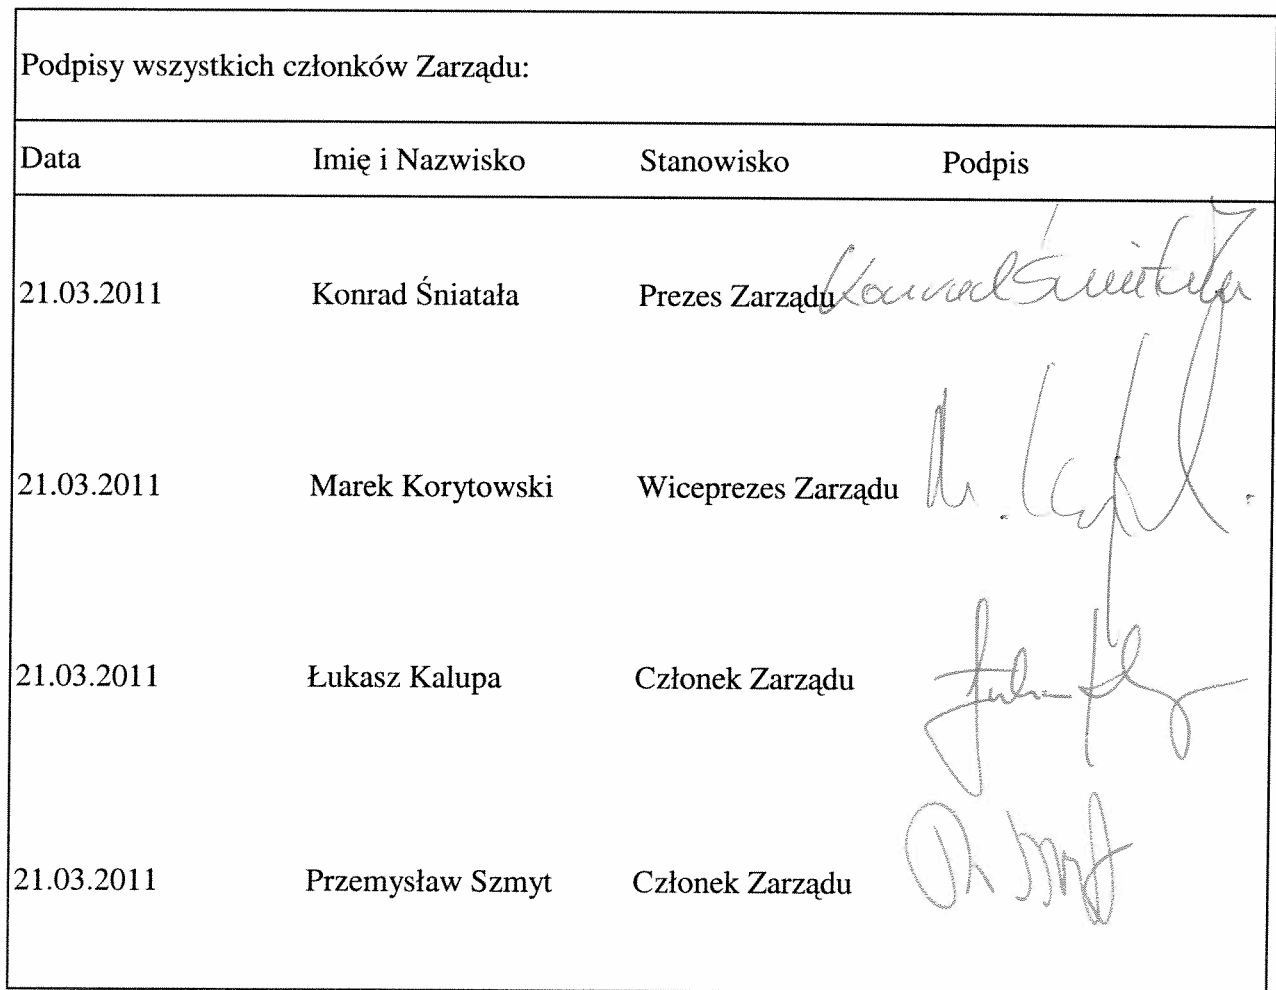 Podpisy wszystkich członków Zarządu:
Data Imię i Nazwisko Stanowisko Podpis
21.03.2011 Konrad Śniatała Prezes Zarządu Konrad Śniatała
21.03.2011 Marek Korytowski Wiceprezes Zarządu
21.03.2011 Łukasz Kalupa Członek Zarządu
21.03.2011 Przemysław Szmyt Członek Zarządu